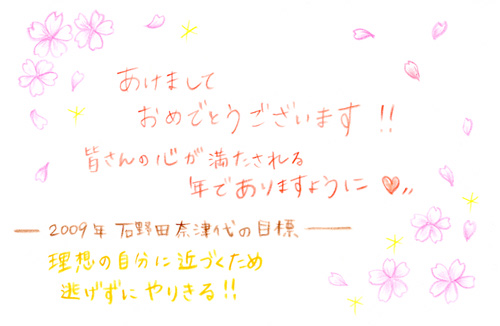 あけまして
おめでとうございます!!
皆さんの心が満たされる
年でありますように♥〃
―2009年 石野田奈津代の目標―
理想の自分に近づくため
逃げずにやりきる!!